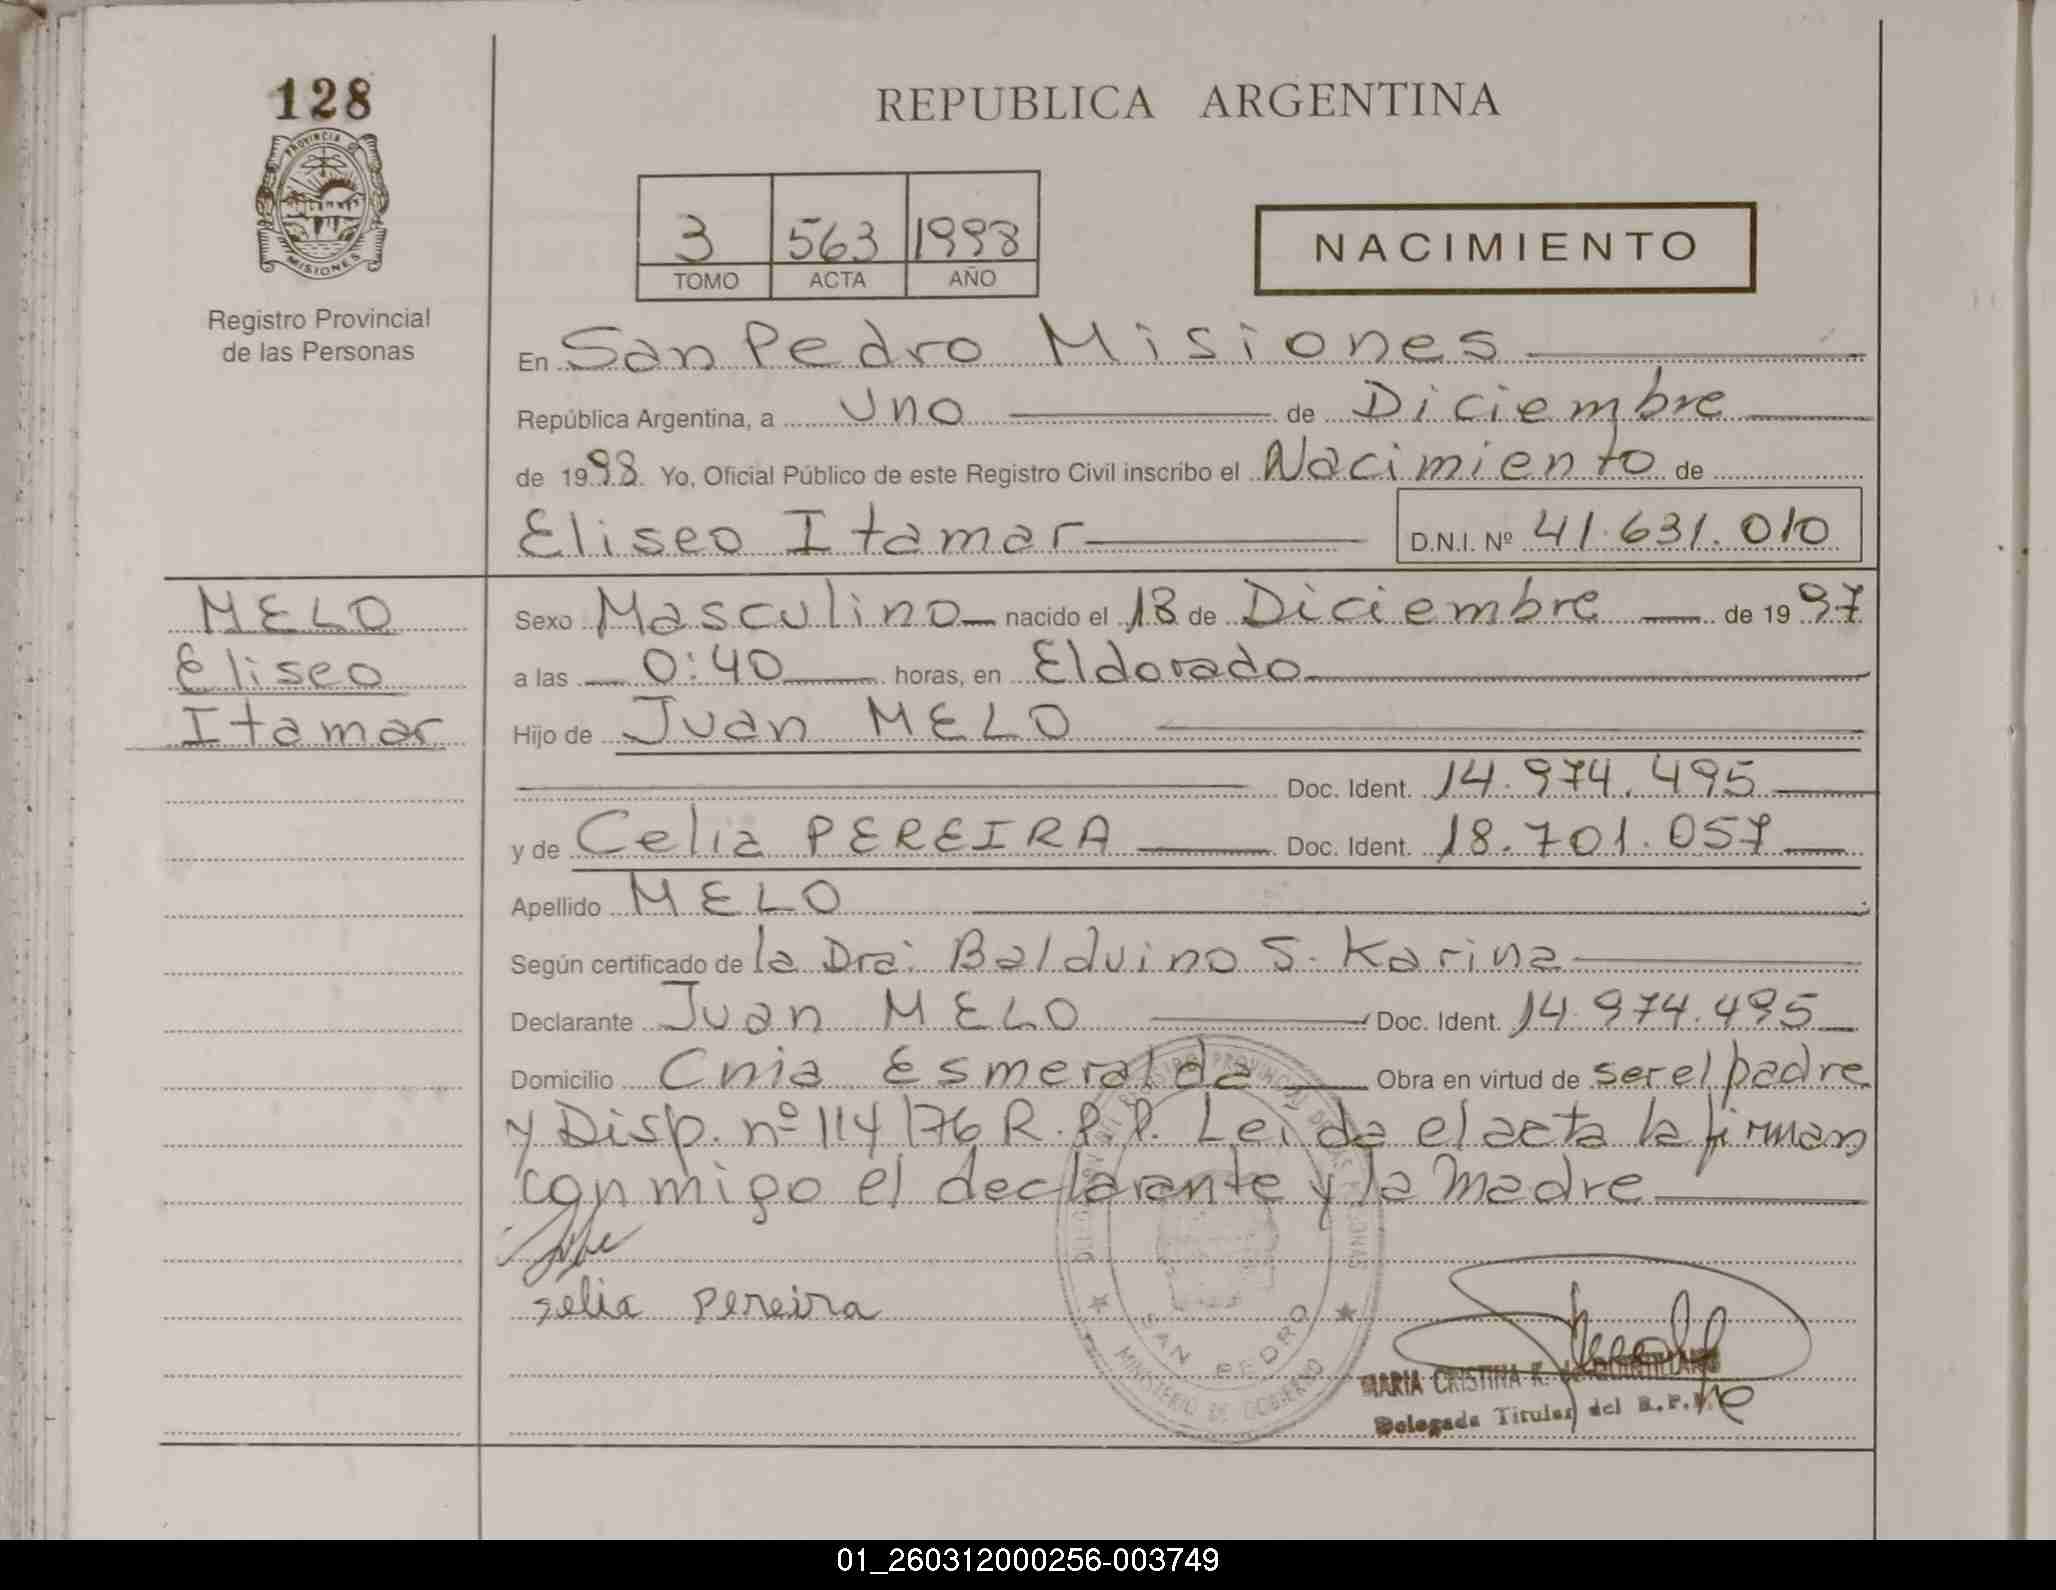 128
PROVINCIA DE
MISIONES
Registro Provincial
de las Personas
REPUBLICA ARGENTINA
3 563 1998
TOMO ACTA AÑO
NACIMIENTO
En San Pedro Misiones
República Argentina, a Uno de Diciembre
de 1998 Yo, Oficial Público de este Registro Civil inscribo el Nacimiento de
Eliseo Itamar D.N.I. Nº 41.631.010
MELO
Eliseo
Itamar
Sexo Masculino nacido el 18 de Diciembre de 1997
a las 0:40 horas, en Eldorado
Hijo de Juan MELO
Doc. Ident. 14.974.495
y de Celia PEREIRA Doc. Ident. 18.701.057
Apellido MELO
Según certificado de la Dra: Balduino S. Karina
Declarante Juan MELO Doc. Ident. 14.974.495
Domicilio Cnia Esmeralda Obra en virtud de ser el padre
y Disp. nº 114/76 R.P.P. Leida el acta la firman
conmigo el declarante y la madre
selia pereira
SAN PEDRO
MINISTERIO DE GOBIERNO
MARIA CRISTINA K.
Delegada Titular del R.P.P.
01_260312000256-003749